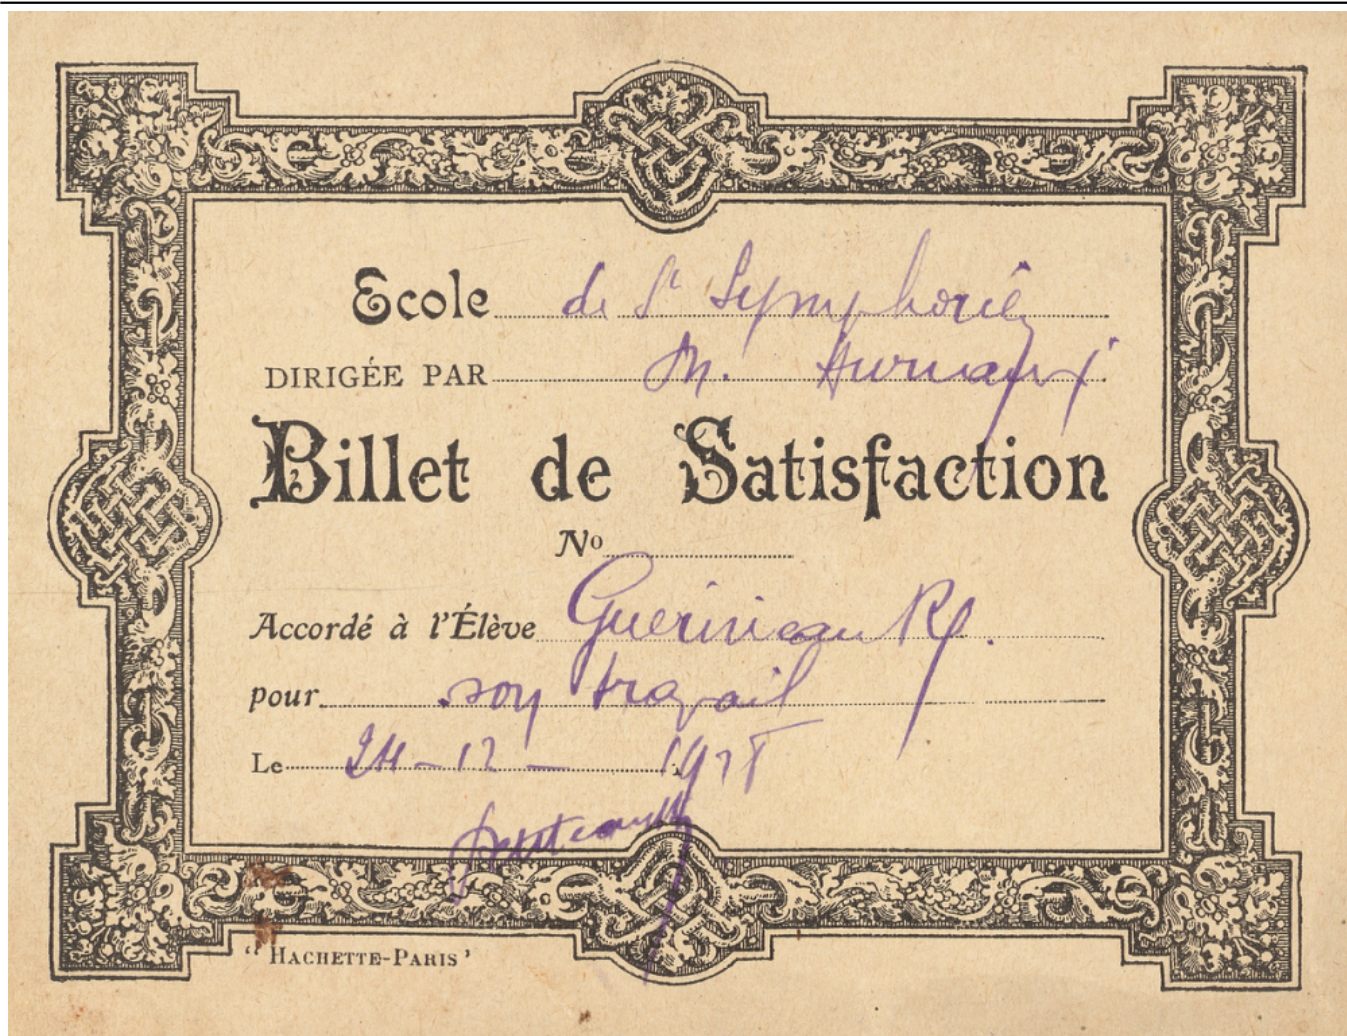 Ecole de St Symphorien
DIRIGÉE PAR M.
Billet de Satisfaction
No
Accordé à l'Élève Guerineau
pour son travail
Le 24-12-
" HACHETTE-PARIS '